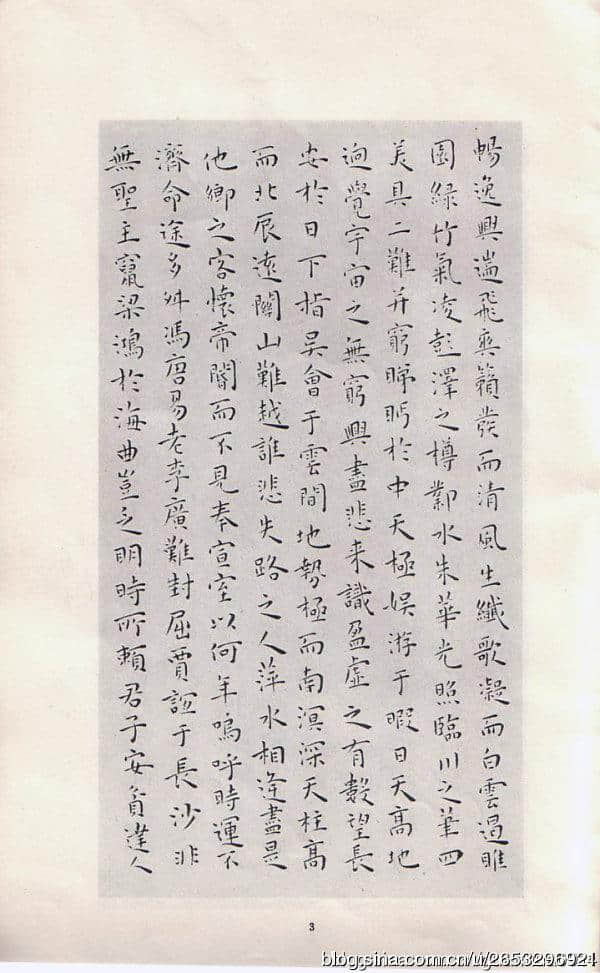 暢逸興遄飛爽籟發而清風生纖歌凝而白雲遏睢
園綠竹氣凌彭澤之樽鄴水朱華光照臨川之筆四
美具二難并窮睇眄於中天極娛游于暇日天高地
迥覺宇宙之無窮興盡悲来識盈虛之有數望長
安於日下指吳會于雲間地勢極而南溟深天柱高
而北辰遠關山難越誰悲失路之人萍水相逢盡是
他鄉之客懷帝閽而不見奉宣室以何年嗚呼時運不
濟命途多舛馮唐易老李廣難封屈賈誼于長沙非
無聖主竄梁鴻於海曲豈乏明時所賴君子安貧達人
3
blog.sina.com.cn/u/2653296924